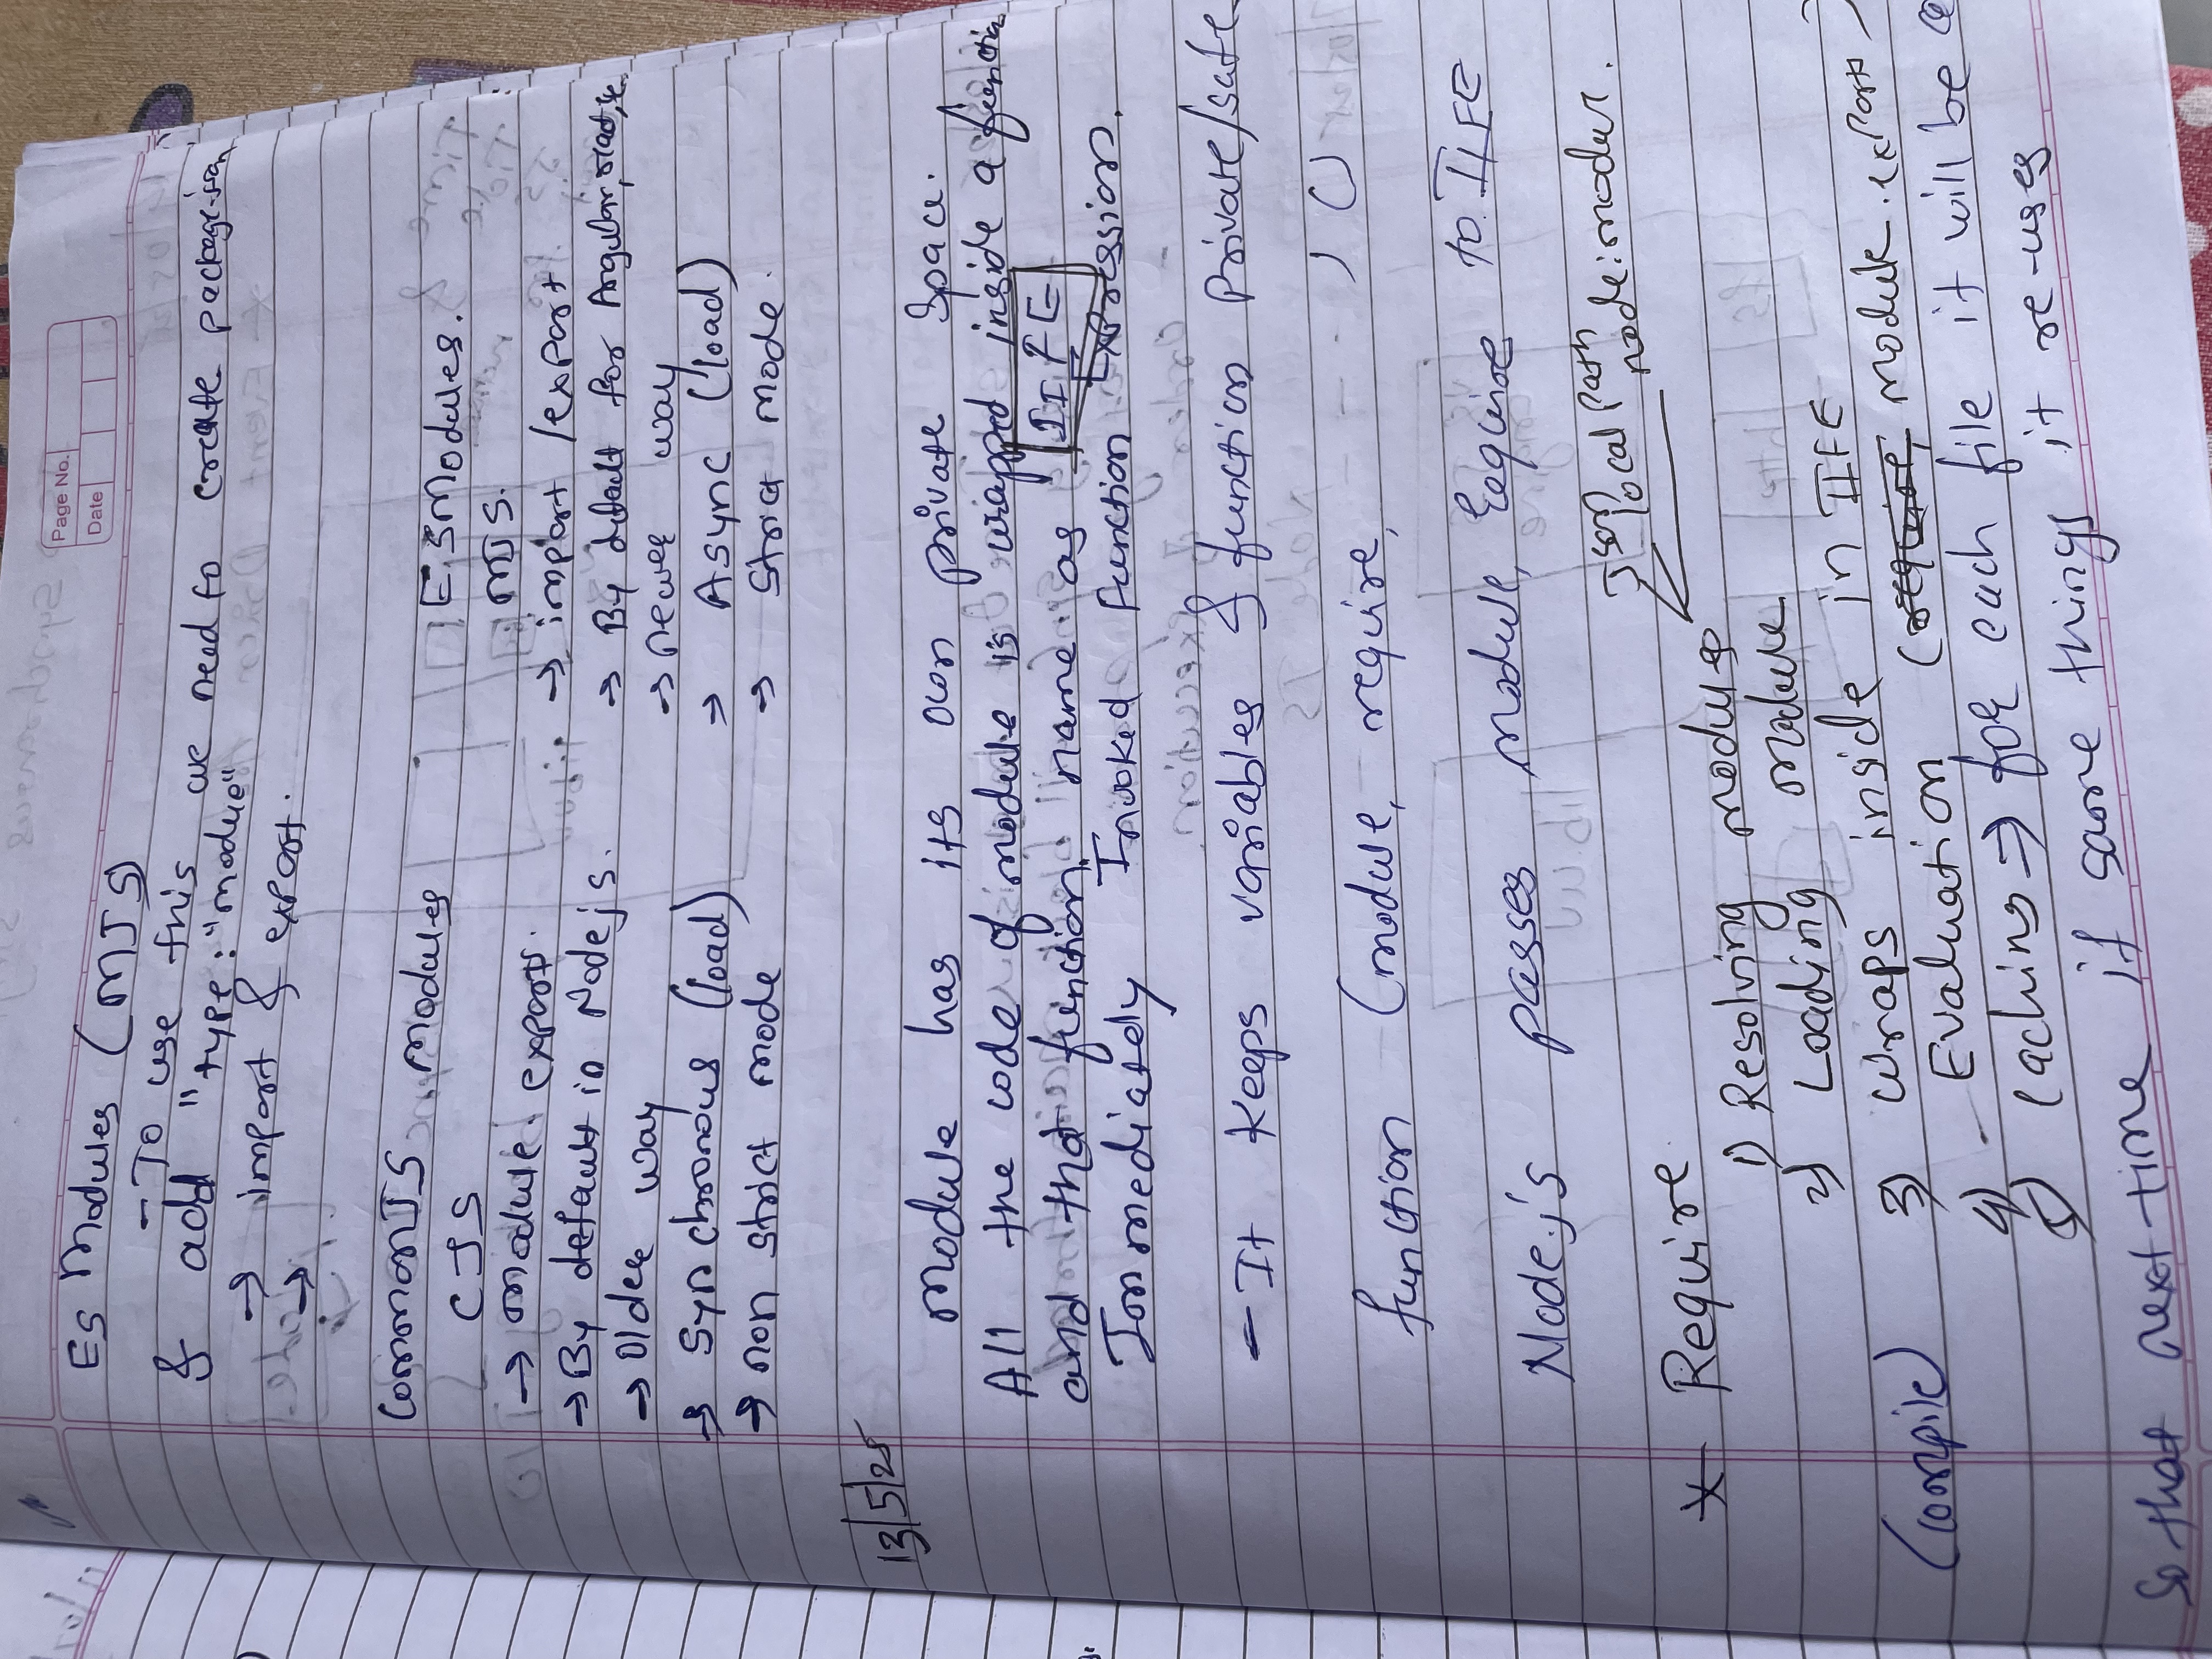 Page No.
Date
ES Modules (MJS)
- To use this we need to create package.json
& add "type: "module"
→ import & export.
→
CommonJS modules
CJS
→ module. exports.
→ By default in Nodejs.
→ Older way
→ Synchronous (load)
→ non strict mode
ESModules.
MJS.
→ import /export
→ By default for Angular, react,
→ newer way
→ Async (load)
→ Strict mode.
13/5/25
Module has its own private Space.
All the code of module is wrapped inside a function
and that function name as IIFE
Immediately Invoked Function Expression.
- It keeps variables & function Private/safe
function (module, require, ) ()
Node.js passes module, require to IIFE
Json local path node:module.
* Require
1) Resolving modules
2) Loading module
3) wraps inside in IIFE
(compile) 4) - Evaluation (require, module.exports)
5) Caching → for each file it will be
So that next time if same things it re-uses